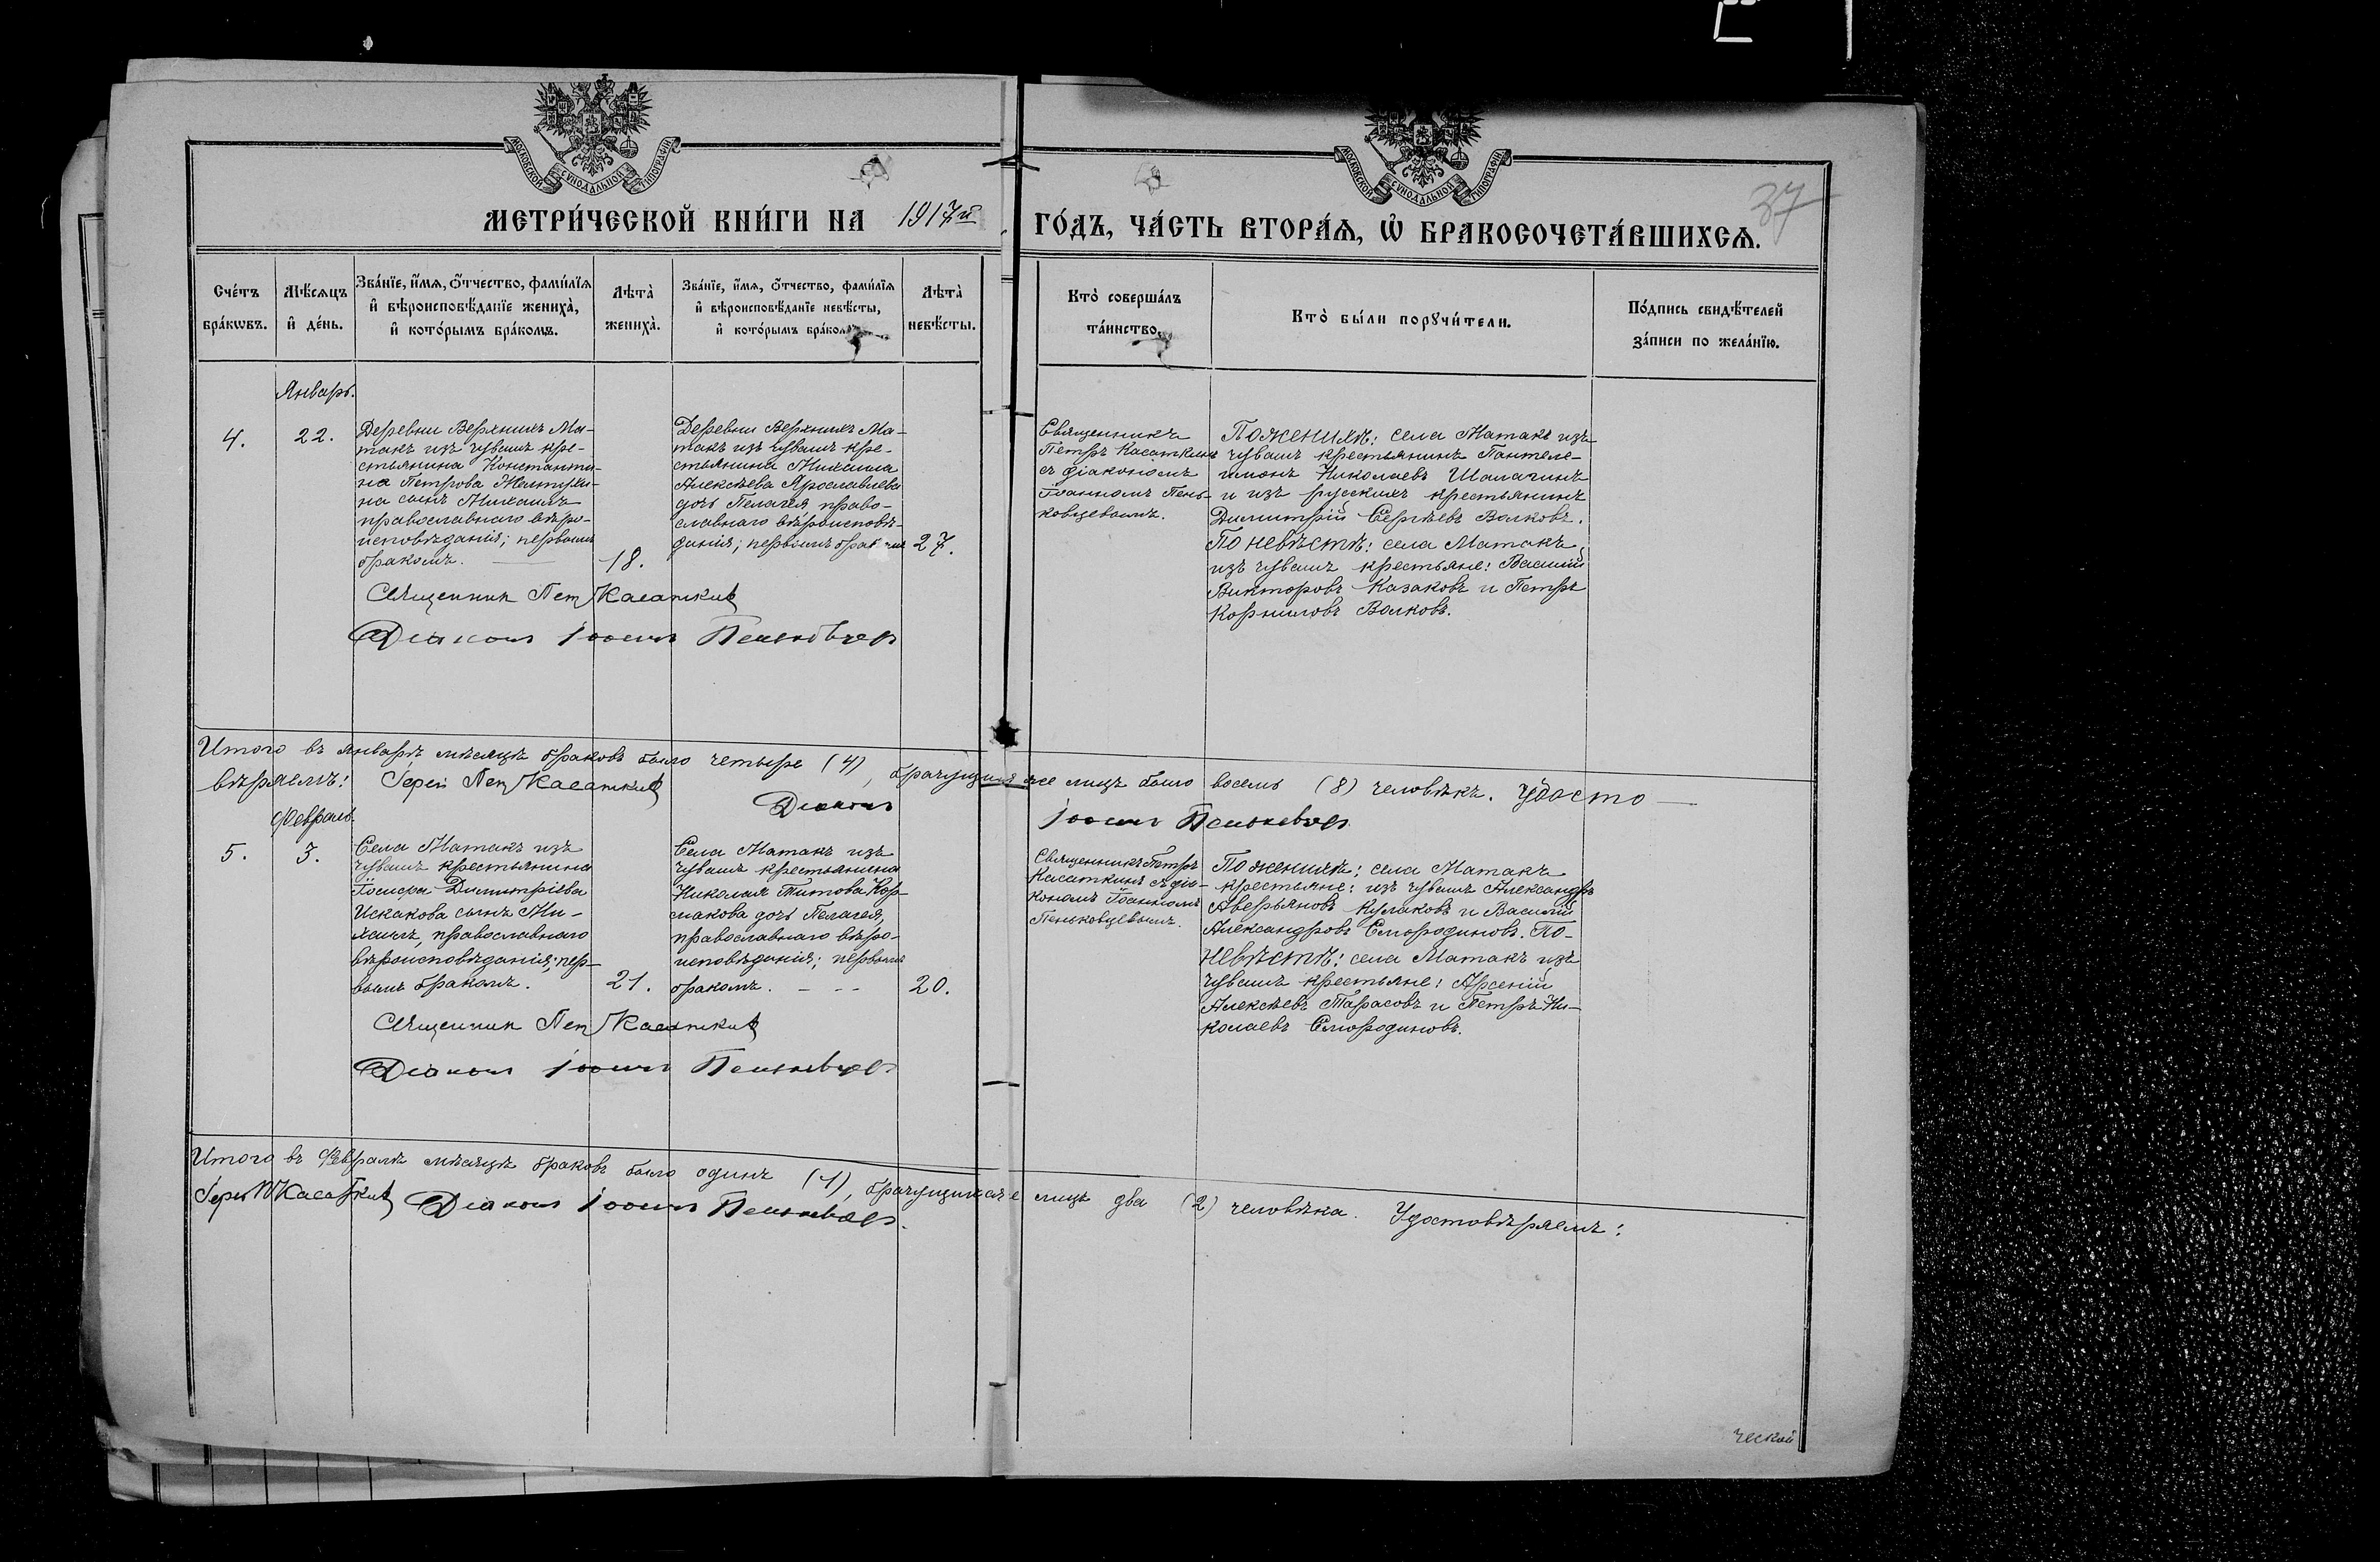 МОСКОВСКОЙ СУНОДАЛЬНОЙ ТИПОГРАФІИ
МОСКОВСКОЙ СУНОДАЛЬНОЙ ТИПОГРАФІИ
37
МЕТРИ́ЧЕСКОЙ КНИ́ГИ НА 1917й ГО́ДЪ, ЧА́СТЬ ВТОРА́Ѧ, Ѽ БРАКОСОЧЕТА́ВШИХСѦ.
Сче́тъ
бра́кѡвъ.
Мѣ́сѧцъ
и҆ де́нь.
Зва́нїе, и҆́мѧ, ѻ҆́тчество, фами́лїѧ
и҆ вѣроисповѣ́данїе жениха̀,
и҆ кото́рымъ бра́комъ.
Лѣта̀
жениха̀.
Зва́нїе, и҆́мѧ, ѻ҆́тчество, фами́лїѧ
и҆ вѣроисповѣ́данїе невѣ́сты,
и҆ кото́рымъ бра́комъ.
Лѣта̀
невѣ́сты.
Кто̀ соверша́лъ
та́инство.
Кто̀ бы́ли порꙋчи́тели.
По́дпись свидѣ́телей
за́писи по жела́нїю.
Январь.
4.
22.
Деревни Верхнихъ Ма-
такъ изъ чувашъ кре-
стьянина Константи-
на Петрова
на сынъ Михаилъ
православнаго вѣро-
исповѣданія; первымъ
бракомъ.
18.
Деревни Верхнихъ Ма-
такъ изъ чувашъ кре-
стьянина Михаила
Алексѣева Ярославлева
дочь Пелагея, право-
славнаго вѣроисповѣ-
данія; первымъ бракомъ
27.
Священникъ
Петръ Касаткинъ
съ діакономъ
Іоанномъ Пень-
ковцевымъ.
По женихѣ: села Матакъ изъ
чувашъ крестьянинъ Пантеле-
имонъ Николаевъ Шалагинъ
и изъ русскихъ крестьянинъ
Димитрій Сергѣевъ Волковъ.
По невѣстѣ: села Матакъ,
изъ чувашъ крестьяне: Василій
Викторовъ Казаковъ и Петръ
Корниловъ Волковъ.
Священник Петр Касаткин
Діакон Іоанн Пеньковцев
Итого въ январѣ мѣсяцѣ браковъ было четыре (4), брачущихся же лицъ было восемь (8) человѣкъ. Удосто-
вѣряемъ: Іерей Петр Касаткин
Діакон Іоанн Пеньковцев
Февраль.
5.
3.
Села Матакъ изъ
чувашъ крестьянина
Іосифа Димитріева
Искакова сынъ Ми-
хаилъ, православнаго
вѣроисповѣданія; пер-
вымъ бракомъ.
21.
Села Матакъ изъ
чувашъ крестьянина
Николая Титова Кор-
макова дочь Пелагея,
православнаго вѣро-
исповѣданія; первымъ
бракомъ.
20.
Священникъ Петръ
Касаткинъ съ діа-
кономъ Іоанномъ
Пеньковцевымъ.
По женихѣ: села Матакъ
крестьяне: изъ чувашъ Александръ
Аверьяновъ Кулаковъ и Василій
Александровъ Смородиновъ. По
невѣстѣ: села Матакъ изъ
чувашъ крестьяне: Арсеній
Алексѣевъ Тарасовъ и Петръ Ни-
колаевъ Смородиновъ.
Священник Петр Касаткин
Діакон Іоанн Пеньковцев
Итого въ Февралѣ мѣсяцѣ браковъ было одинъ (1), брачущихся лицъ два (2) человѣка. Удостовѣряемъ:
Іерей П Касаткин Діакон Іоанн Пеньковцев.
ческой